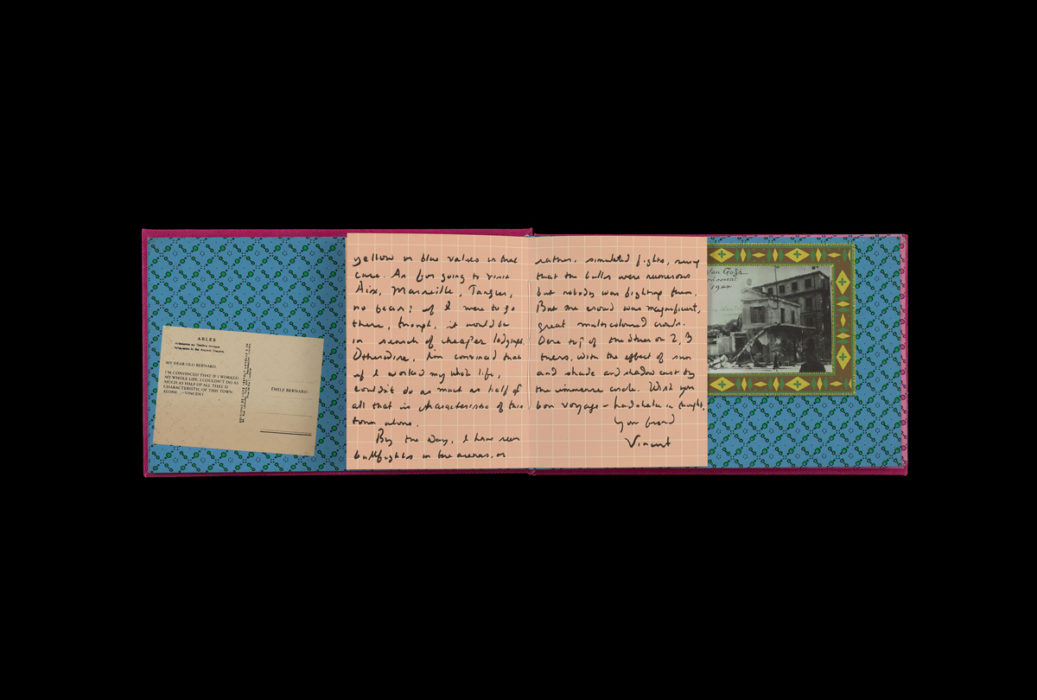 ARLES
MY DEAR OLD BERNARD,
I'M CONVINCED THAT IF I WORKED
MY WHOLE LIFE, I COULDN'T DO AS
MUCH AS HALF OF ALL THAT IS
CHARACTERISTIC OF THIS TOWN
ALONE. —VINCENT
EMILE BERNARD
yellow or blue values in that
case. As for going to visit
Aix, Marseille, Tangier,
no fear; if I were to go
there, though, it would be
in search of cheaper lodgings
Otherwise, I'm convinced that
if I worked my whole life,
couldn't do as much as half of
all that is characteristic of this
town alone.
By the way, I have seen
bullfights in the arenas, or
rather, simulated fights, seeing
that the bulls were numerous
but nobody was fighting them.
But the crowd was magnificent,
great multicoloured crowds
One top of the other on 2, 3
tiers, with the effect of sun
and shade and shadow cast by
the immense circle. Wish you
bon voyage - handshake in thought,
Your friend
Vincent
Van Gogh
1922